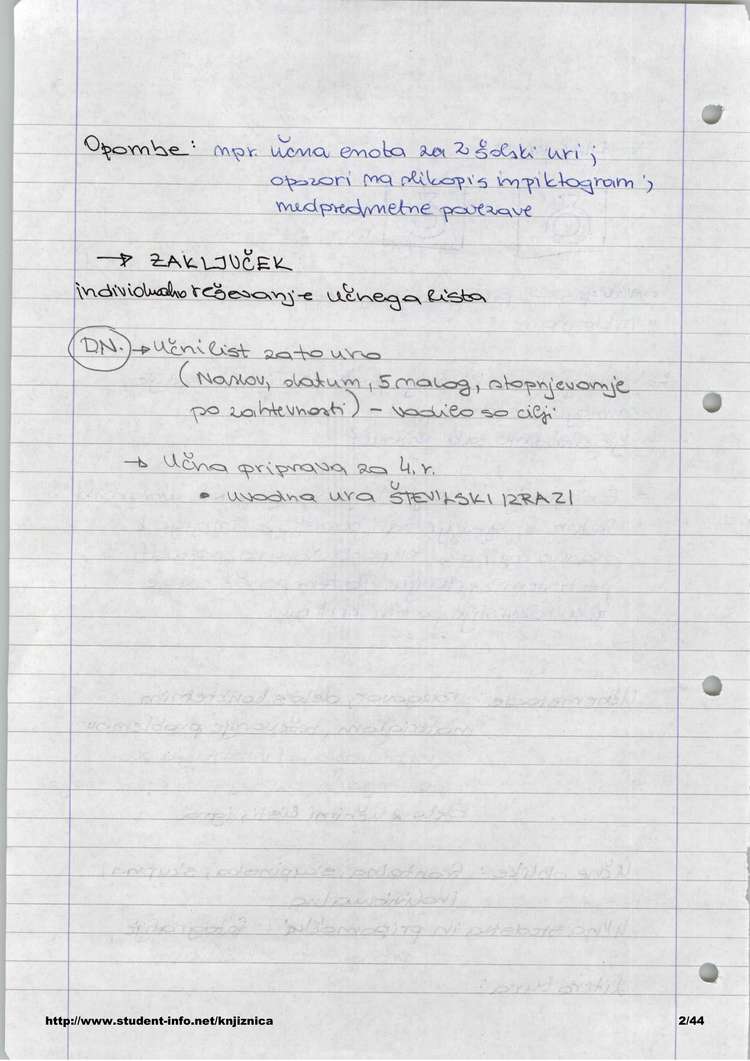 Opombe: npr. učna enota za 2 šolski uri;
opozori na slikopis in piktogram;
medpredmetne povezave
→ ZAKLJUČEK
individualno reševanje učnega lista
DN. → Učni list za to uro
(Naslov, datum, 5 nalog, stopnjevanje
po zahtevnosti) – vodilo so cilji
→ Učna priprava za 4. r.
• uvodna ura ŠTEVILSKI IZRAZI
http://www.student-info.net/knjiznica
2/44